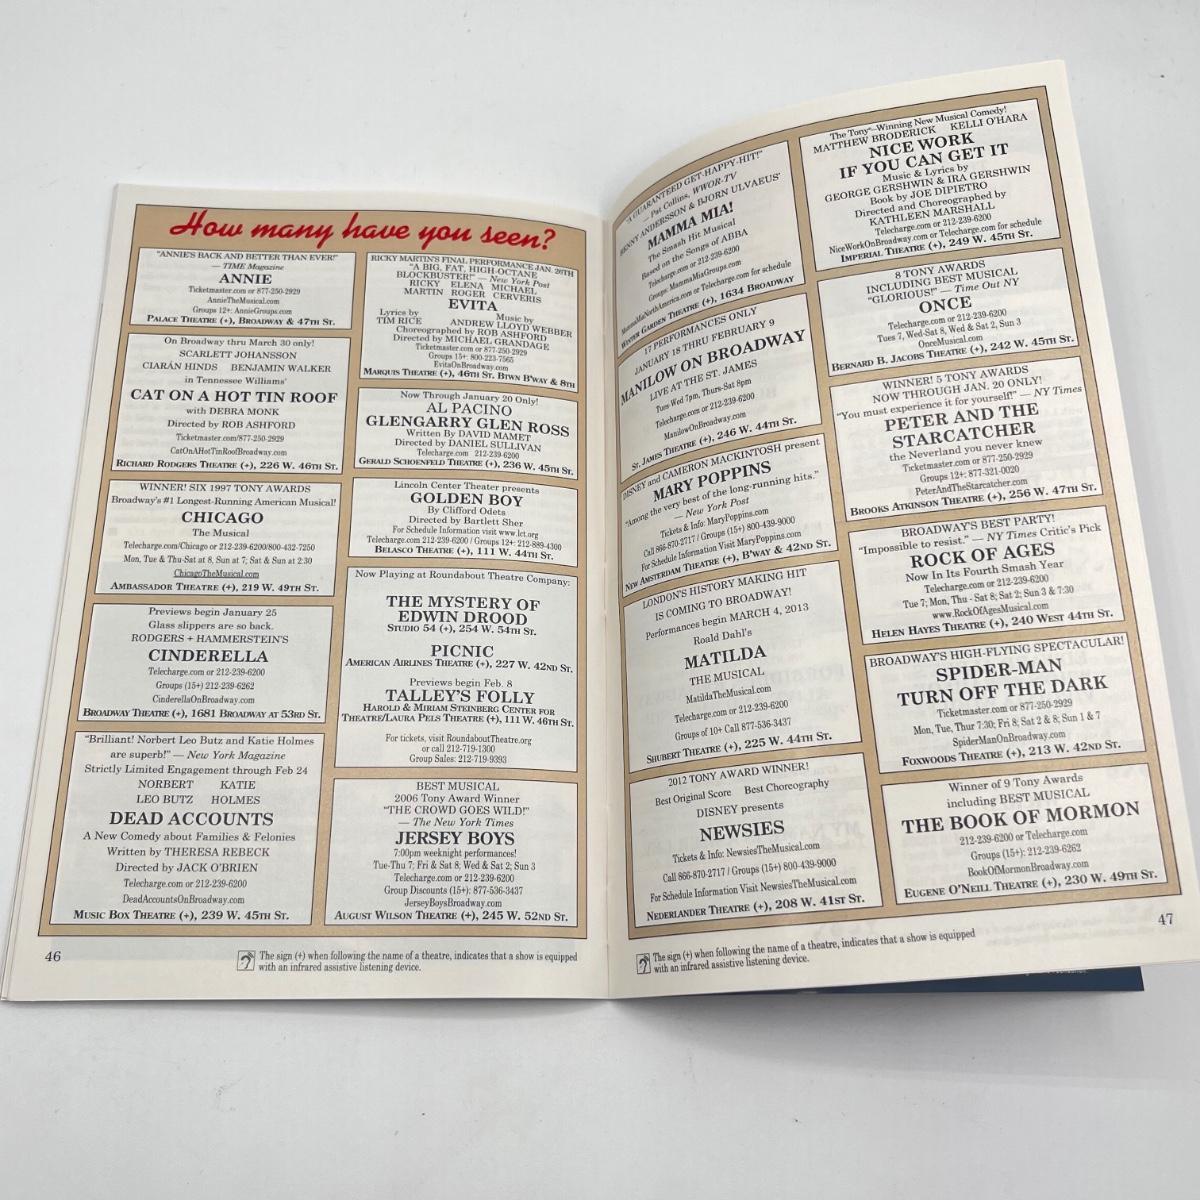 How many have you seen?
"ANNIE'S BACK AND BETTER THAN EVER!"
— TIME Magazine
ANNIE
Ticketmaster.com or 877-250-2929
AnnieTheMusical.com
Groups 12+: AnnieGroups.com
PALACE THEATRE (+), BROADWAY & 47TH ST.
On Broadway thru March 30 only!
SCARLETT JOHANSSON
CIARÁN HINDS BENJAMIN WALKER
in Tennessee Williams'
CAT ON A HOT TIN ROOF
with DEBRA MONK
Directed by ROB ASHFORD
Ticketmaster.com/877-250-2929
CatOnAHotTinRoofBroadway.com
RICHARD RODGERS THEATRE (+), 226 W. 46TH ST.
WINNER! SIX 1997 TONY AWARDS
Broadway's #1 Longest-Running American Musical!
CHICAGO
The Musical
Telecharge.com/Chicago or 212-239-6200/800-432-7250
Mon, Tue & Thu-Sat at 8, Sun at 7; Sat & Sun at 2:30
ChicagoTheMusical.com
AMBASSADOR THEATRE (+), 219 W. 49TH ST.
Previews begin January 25
Glass slippers are so back.
RODGERS + HAMMERSTEIN'S
CINDERELLA
Telecharge.com or 212-239-6200
Groups (15+) 212-239-6262
CinderellaOnBroadway.com
BROADWAY THEATRE (+), 1681 BROADWAY AT 53RD ST.
"Brilliant! Norbert Leo Butz and Katie Holmes
are superb!" — New York Magazine
Strictly Limited Engagement through Feb 24
NORBERT KATIE
LEO BUTZ HOLMES
DEAD ACCOUNTS
A New Comedy about Families & Felonies
Written by THERESA REBECK
Directed by JACK O'BRIEN
Telecharge.com or 212-239-6200
DeadAccountsOnBroadway.com
MUSIC BOX THEATRE (+), 239 W. 45TH ST.
RICKY MARTIN'S FINAL PERFORMANCE JAN. 26TH
"A BIG, FAT, HIGH-OCTANE
BLOCKBUSTER!" — New York Post
RICKY ELENA MICHAEL
MARTIN ROGER CERVERIS
EVITA
Lyrics by Music by
TIM RICE ANDREW LLOYD WEBBER
Choreographed by ROB ASHFORD
Directed by MICHAEL GRANDAGE
Ticketmaster.com or 877-250-2929
Groups 15+: 800-223-7565
EvitaOnBroadway.com
MARQUIS THEATRE (+), 46TH ST. BTWN B'WAY & 8TH
Now Through January 20 Only!
AL PACINO
GLENGARRY GLEN ROSS
Written By DAVID MAMET
Directed by DANIEL SULLIVAN
Telecharge.com 212-239-6200
GERALD SCHOENFELD THEATRE (+), 236 W. 45TH ST.
Lincoln Center Theater presents
GOLDEN BOY
By Clifford Odets
Directed by Bartlett Sher
For Schedule Information visit www.lct.org
Telecharge.com 212-239-6200 / Groups 12+: 212-889-4300
BELASCO THEATRE (+), 111 W. 44TH ST.
Now Playing at Roundabout Theatre Company:
THE MYSTERY OF
EDWIN DROOD
STUDIO 54 (+), 254 W. 54TH ST.
PICNIC
AMERICAN AIRLINES THEATRE (+), 227 W. 42ND ST.
Previews begin Feb. 8
TALLEY'S FOLLY
HAROLD & MIRIAM STEINBERG CENTER FOR
THEATRE/LAURA PELS THEATRE (+), 111 W. 46TH ST.
For tickets, visit RoundaboutTheatre.org
or call 212-719-1300
Group Sales: 212-719-9393
BEST MUSICAL
2006 Tony Award Winner
"THE CROWD GOES WILD!"
— The New York Times
JERSEY BOYS
7:00pm weeknight performances!
Tue-Thu 7; Fri & Sat 8; Wed & Sat 2; Sun 3
Telecharge.com or 212-239-6200
Group Discounts (15+): 877-536-3437
JerseyBoysBroadway.com
AUGUST WILSON THEATRE (+), 245 W. 52ND ST.
46
The sign (+) when following the name of a theatre, indicates that a show is equipped
with an infrared assistive listening device.
"A GUARANTEED GET-HAPPY-HIT!"
— Pat Collins, WWOR-TV
BENNY ANDERSSON & BJORN ULVAEUS'
MAMMA MIA!
The Smash Hit Musical
Based on the Songs of ABBA
Telecharge.com or 212-239-6200
Groups: MammaMiaGroups.com
MammaMiaNorthAmerica.com or Telecharge.com for schedule
WINTER GARDEN THEATRE (+), 1634 BROADWAY
17 PERFORMANCES ONLY
JANUARY 18 THRU FEBRUARY 9
MANILOW ON BROADWAY
LIVE AT THE ST. JAMES
Tues-Wed 7pm, Thurs-Sat 8pm
Telecharge.com or 212-239-6200
ManilowOnBroadway.com
ST. JAMES THEATRE (+), 246 W. 44TH ST.
DISNEY and CAMERON MACKINTOSH present
MARY POPPINS
"Among the very best of the long-running hits."
— New York Post
Tickets & Info: MaryPoppins.com
Call 866-870-2717 / Groups (15+) 800-439-9000
For Schedule Information Visit MaryPoppins.com
NEW AMSTERDAM THEATRE (+), B'WAY & 42ND ST.
LONDON'S HISTORY MAKING HIT
IS COMING TO BROADWAY!
Performances begin MARCH 4, 2013
Roald Dahl's
MATILDA
THE MUSICAL
MatildaTheMusical.com
Telecharge.com or 212-239-6200
Groups of 10+ Call 877-536-3437
SHUBERT THEATRE (+), 225 W. 44TH ST.
2012 TONY AWARD WINNER!
Best Original Score Best Choreography
DISNEY presents
NEWSIES
Tickets & Info: NewsiesTheMusical.com
Call 866-870-2717 / Groups (15+) 800-439-9000
For Schedule Information Visit NewsiesTheMusical.com
NEDERLANDER THEATRE (+), 208 W. 41ST ST.
The Tony®-Winning New Musical Comedy!
MATTHEW BRODERICK KELLI O'HARA
NICE WORK
IF YOU CAN GET IT
Music & Lyrics by
GEORGE GERSHWIN & IRA GERSHWIN
Book by JOE DIPIETRO
Directed and Choreographed by
KATHLEEN MARSHALL
Telecharge.com or 212-239-6200
NiceWorkOnBroadway.com or Telecharge.com for schedule
IMPERIAL THEATRE (+), 249 W. 45TH ST.
8 TONY AWARDS
INCLUDING BEST MUSICAL
"GLORIOUS!" — Time Out NY
ONCE
Telecharge.com or 212-239-6200
Tues 7, Wed-Sat 8, Wed & Sat 2, Sun 3
OnceMusical.com
BERNARD B. JACOBS THEATRE (+), 242 W. 45TH ST.
WINNER! 5 TONY AWARDS
NOW THROUGH JAN. 20 ONLY!
"You must experience it for yourself!" — NY Times
PETER AND THE
STARCATCHER
the Neverland you never knew
Ticketmaster.com or 877-250-2929
Groups 12+: 877-321-0020
PeterAndTheStarcatcher.com
BROOKS ATKINSON THEATRE (+), 256 W. 47TH ST.
BROADWAY'S BEST PARTY!
"Impossible to resist." — NY Times Critic's Pick
ROCK OF AGES
Now In Its Fourth Smash Year
Telecharge.com or 212-239-6200
Tue 7; Mon, Thu - Sat 8; Sat 2; Sun 3 & 7:30
www.RockOfAgesMusical.com
HELEN HAYES THEATRE (+), 240 WEST 44TH ST.
BROADWAY'S HIGH-FLYING SPECTACULAR!
SPIDER-MAN
TURN OFF THE DARK
Ticketmaster.com or 877-250-2929
Mon, Tue, Thur 7:30; Fri 8; Sat 2 & 8; Sun 1 & 7
SpiderManOnBroadway.com
FOXWOODS THEATRE (+), 213 W. 42ND ST.
Winner of 9 Tony Awards
including BEST MUSICAL
THE BOOK OF MORMON
212-239-6200 or Telecharge.com
Groups (15+): 212-239-6262
BookOfMormonBroadway.com
EUGENE O'NEILL THEATRE (+), 230 W. 49TH ST.
47
The sign (+) when following the name of a theatre, indicates that a show is equipped
with an infrared assistive listening device.